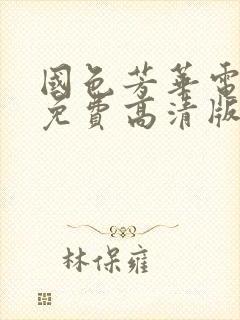 國色芳華電
免費高清版
林保雍